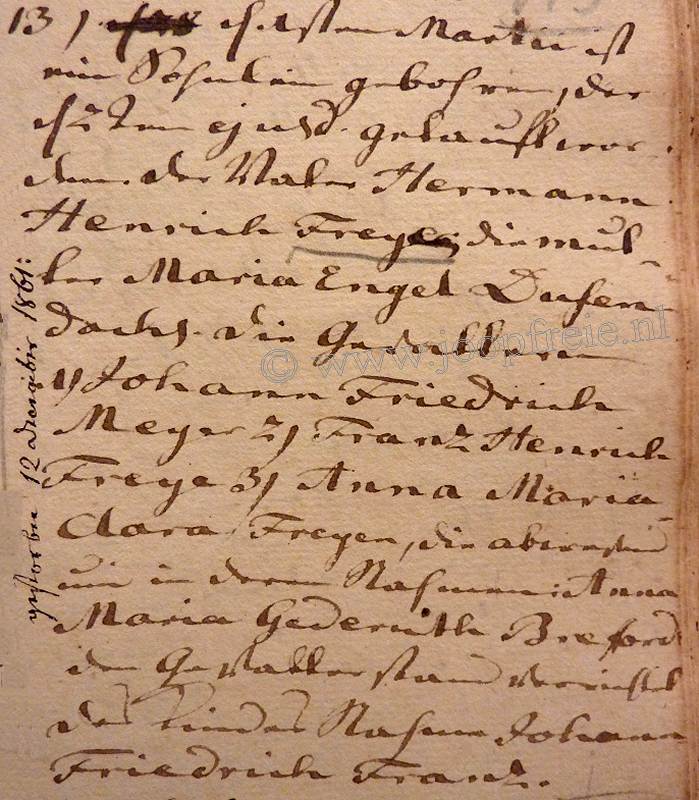 13)
Martii ist
ein Söhnlein gebohren, der
ejusd. getaufft wor-
den. der Vater Hermann
Henrich Freye, die mut-
ter Maria Engel Dufen
dachs. die Gevattern
1) Johann Friedrich
Meyer 2) Franz Henrich
Freye 3) Anna Maria
Clara Freyen, die
in deren Nahmen: Anna
Maria Bre
den Gevatterstand verrichtet
des Kindes Nahme Johann
Friedrich Franz.
gestorben 12 december 1861:
© www.joopfreie.nl